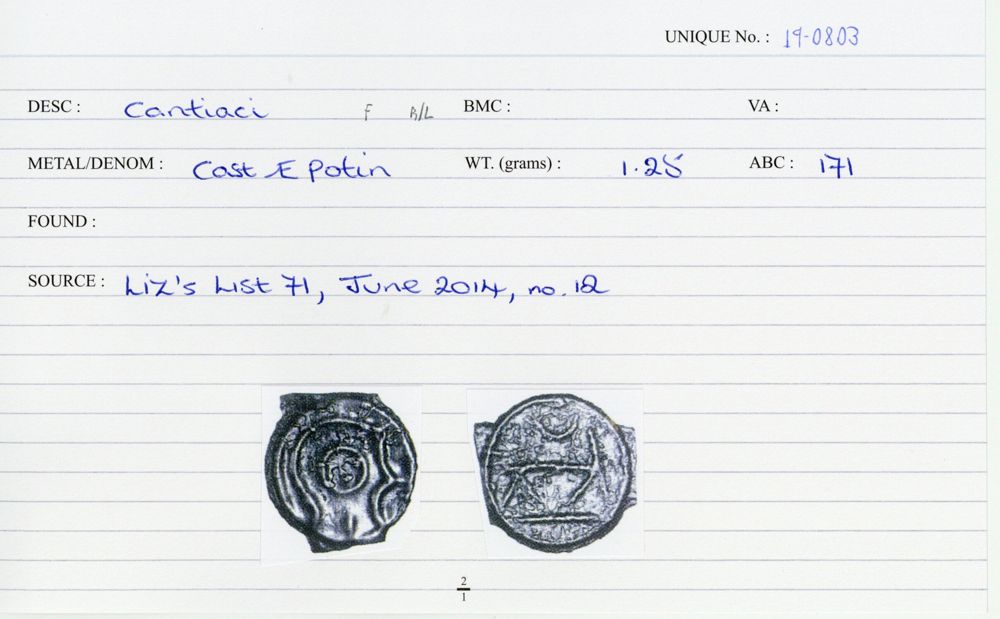 UNIQUE No. : 19-0803
DESC : Cantiaci F R/L BMC : VA :
METAL/DENOM : Cast Æ Potin WT. (grams) : 1.25 ABC : 171
FOUND :
SOURCE : Liz's List 71, June 2014, no. 12
2
1